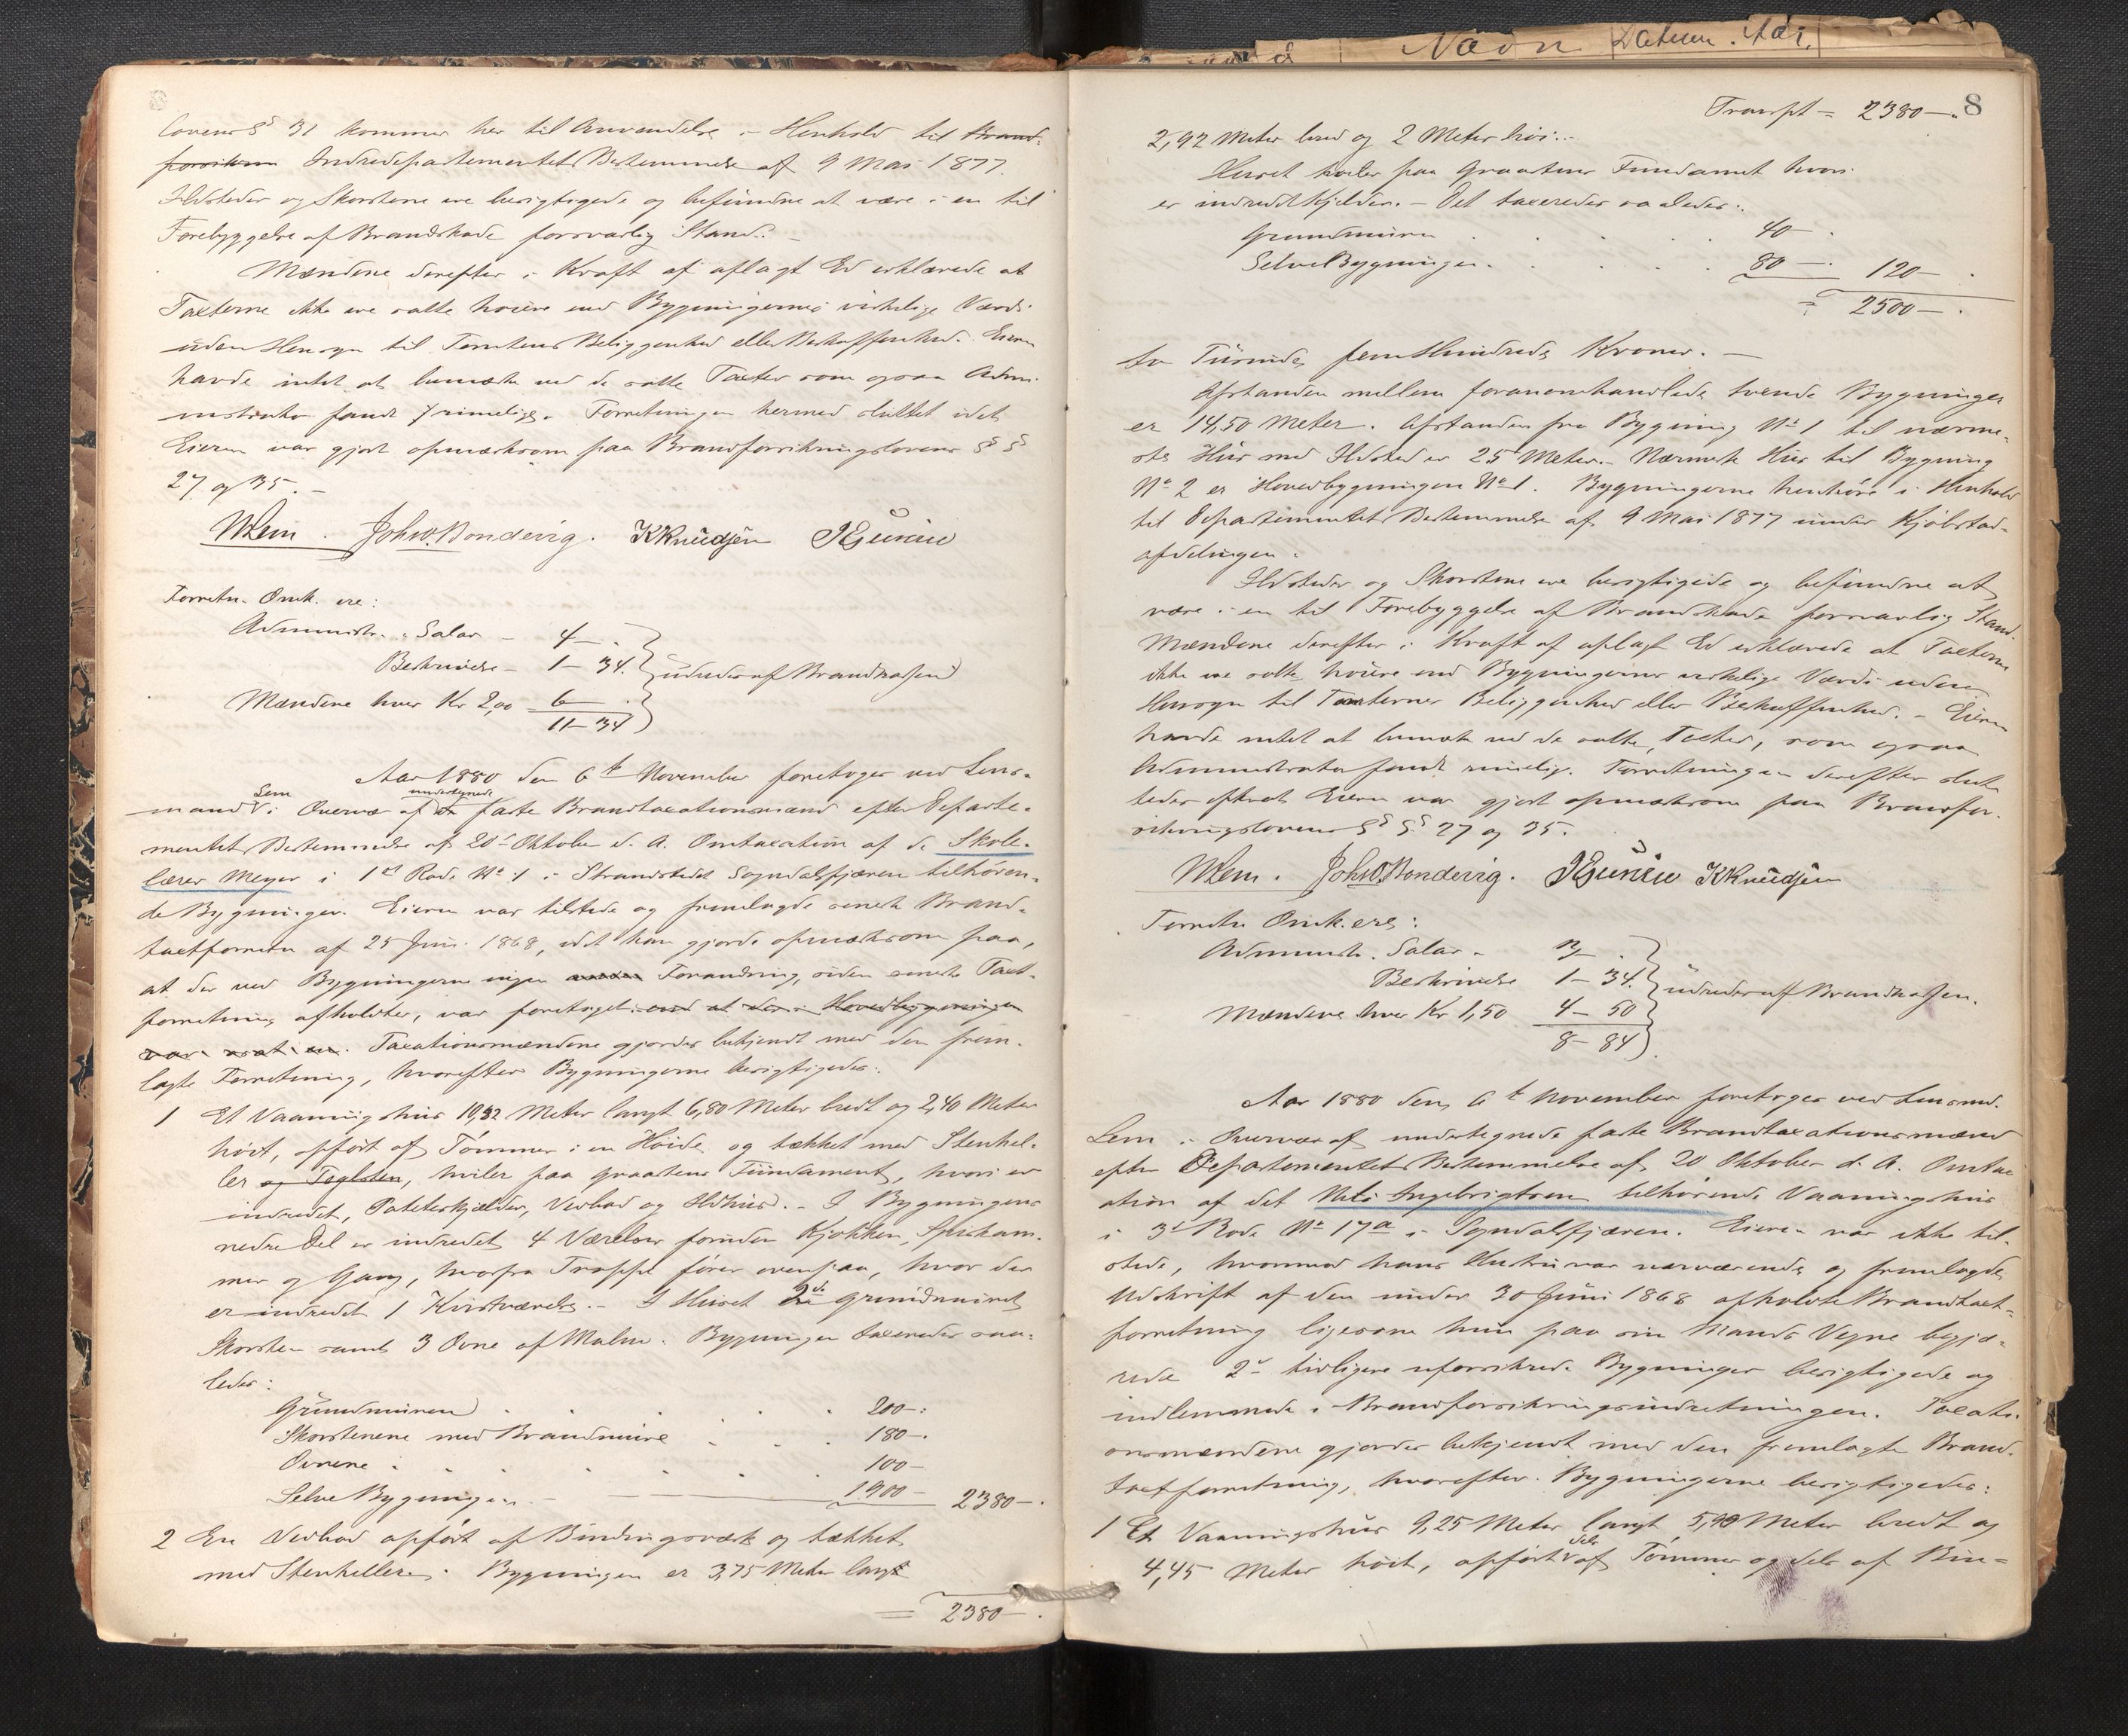 lovens §§ 31 kommer her til Anvendelse. – Henhold til Brand-
forsikrin Indredepartementets Bestemmelse af 9 Mai 1877.
Ildsteder og Skorstene ere besigtigede og befundne at være i en til
Forebyggelse af Brandskade forsvarlig Stand. –
Mændene derefter i Kraft af aflagt Ed erklærede at
Taxterne ikke ere satte høiere end Bygningernes virkelige Værdi
uden Hensyn til Tomtens Beliggenhed eller Beskaffenhed. Eieren
havde intet at bemærke ved de satte Taxter som ogsaa Admi-
nistrator fandt rimelige. Forretningen hermed sluttet idet
Eieren var gjort opmærksom paa Brandforsikringslovens § §
27 og 35. –
Lem. Joh. O. Bondevig. K Knudsen
Forretn. Omk. ere:
Administr. Salar – 4 – .
Beskrivelse – 1 – 34.
Mændene hver Kr 2,00 6
udredes af Brandkassen
11 – 34
Aar 1880 den 6te November foretoges ved Lens-
mand Lem i Overvær af undertegnede faste Brandtaxationsmænd efter Departe-
mentets Bestemmelse af 20de Oktober d. A. Omtaxation af de Skole-
lærer Meyer i 1ste Rode No 1 i Strandstedet Sogndalsfjæren tilhøren-
de Bygninger. Eieren var tilstede og fremlagde seneste Brand-
taxtforretn af 25 Juni 1868, idet han gjorde opmærksom paa,
at der ved Bygningerne ingen Forandring, siden seneste Taxt-
forretning afholdtes, var foretaget. and at den i Hovedbygningen
var Taxationsmændene gjordes bekjendt med den frem-
lagte Forretning, hvorefter Bygningerne besigtigedes:
1 Et Vaaningshus 10,92 Meter langt 6,80 Meter bredt og 2,40 Meter
høit, opført af Tømmer i en Høide og tækket med Stenhel-
ler og Teglsten, hviler paa Graastens Fundament, hvori er
indredet, Poteteskjælder, Vedbod og Ildhus. – I Bygningens
nedre Del er indredet 4 Værelser foruden Kjøkken, Spiskam-
mer og Gang, hvorfra Trappe fører ovenpaa, hvor der
er indredet 1 Kvistværelse. – I Huset 2de grundmuret
Skorsten samt 3 Ovne af Malm. Bygningen taxeredes saa-
ledes:
Grundmuren . . . . 200 –
Skorstenene med Brandmure . . . 180 –
Ovnene . . . . . . 100 –
Selve Bygningen – 1900 – 2380 –
2 En Vedbod opført af Bindingsværk og tækket
med Stenheller. Bygningen er 3,75 Meter langt
= 2380 – .
Nævn Datum. Aar.
8
Transpt = 2380 –
2,92 Meter bred og 2 Meter høi. –
Huset hviler paa Graastens Fundament hvori
er indredet Kjelder. – Det taxeredes saaledes:
Grundmuren . . . . 40 – .
Selve Bygningen . . . . 80 – . 120 – .
= 2500 – .
to Tusinde fem Hundrede Kroner. –
Afstanden mellem foranomhandlede tvende Bygninger
er 14,50 Meter. Afstanden fra Bygning No 1 til nærme-
ste Hus med Ildsted er 25 Meter. Nærmeste Hus til Bygning
No 2 er Hovedbygningen No 1. Bygningerne henhøre i Henhold
til Departementets Bestemmelse af 9 Mai 1877 under Kjøbstad-
afdelingen.
Ildsteder og Skorstene ere besigtigede og befundne at
være i en til Forebyggelse af Brandskade forsvarlig Stand.
Mændene derefter i Kraft af aflagt Ed erklærede at Taxterne
ikke ere satte høiere end Bygningernes virkelige Værdi uden
Hensyn til Tomternes Beliggenhed eller Beskaffenhed. – Eieren
havde intet at bemærke ved de satte Taxter, som ogsaa
Administrator fandt rimelig. Forretningen derefter slut-
tedes efterat Eieren var gjort opmærksom paa Brandfor-
sikringslovens § § 27 og 35.
Lem. Joh. O. Bondevig. K Knudsen
Forretn Omk. ere:
Administr. Salar – 3 – .
Beskrivelse 1 – 34.
Mændene hver Kr 1,50 4 – 50
udredes af Brandkassen.
8 – 84
Aar 1880 den 6te November foretoges ved Lensmd.
Lem i Overvær af undertegnede faste Brandtaxationsmænd
efter Departementets Bestemmelse af 20 Oktober d. A. Omtax-
ation af det Nils Ingebrigtsen tilhørende Vaaningshus
i 3de Rode No 17a i Sogndalsfjæren. Eieren var ikke til-
stede, hvorimod hans Hustru var nærværende og fremlagde
Udskrift af den under 30 Juni 1868 afholdte Brandtaxt-
forretning ligesom hun paa sin Mands Vegne begjæ-
rede 2de tidligere uforsikrede Bygninger besigtigede og
indlemmede i Brandforsikringsindretningen. Taxati-
onsmændene gjordes bekjendt med den fremlagte Brand-
taxtforretning, hvorefter Bygningerne besigtigedes:
1 Et Vaaningshus 9,25 Meter langt 5,90 Meter bredt og
4,45 Meter høit, opført dels af Tømmer og dels af Bin-